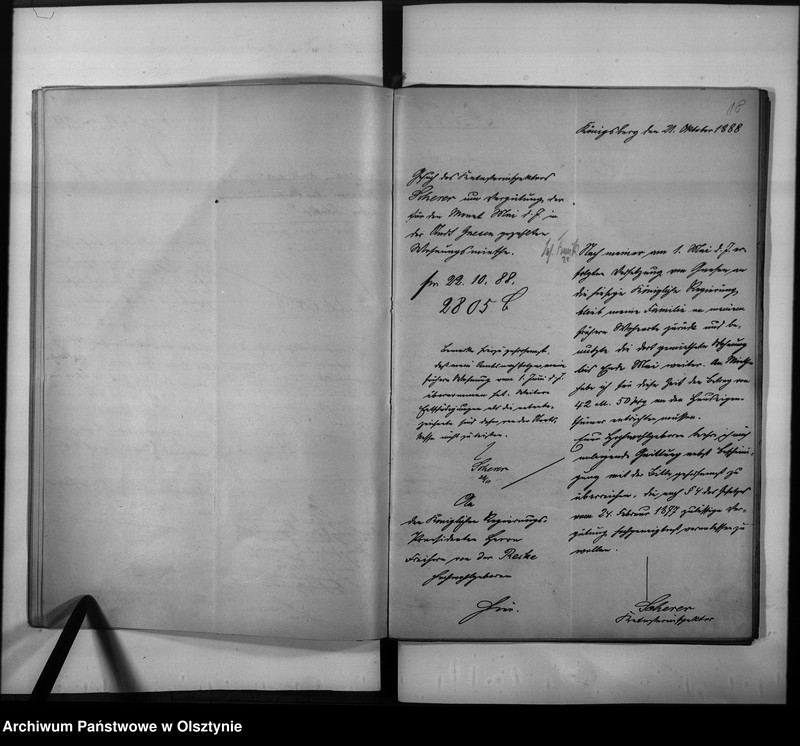 18
Königsberg den 21. Oktober 1888
Gesuch des Katasterinspektors
Scherer um Vergütung der
für den Monat Mai d. J. in
der Stadt Gnesen gezahlten
Wohnungsmiethe.
pr. 22. 10. 88.
2805 C
Bemerke hierzu gehorsamst,
daß mein Amtsnachfolger meine
frühere Wohnung vom 1. Juni d. J.
übernommen hat. Weitere
Entschädigungen als die
sind daher von der Staats-
kasse nicht zu leisten.
Scherer
An
den Königlichen Regierungs-
Praesidenten Herrn
Freiherr von der Recke
Hochwohlgeboren
hier.
Nach meiner am 1. Mai d. J. er-
folgten Versetzung von Gnesen an
die hiesige Königliche Regierung,
blieb meine Familie an meinem
frühern Wohnorte zurück und be-
nutzte die dort gemiethete Wohnung
bis Ende Mai weiter. An Miethe
habe ich für diese Zeit den Betrag von
42 M. 50 Pfg an den Hauseigen-
thümer entrichten müssen.
Euer Hochwohlgeboren beehre ich mich
anliegende Quittung nebst Beschein-
gung mit der Bitte gehorsamst zu
überreichen, die nach § 4 des Gesetzes
vom 24. Februar 1877 zulässige Ver-
gütung hochgeneigtest veranlassen zu
wollen.
Scherer
Katasterinspektor
Archiwum Państwowe w Olsztynie